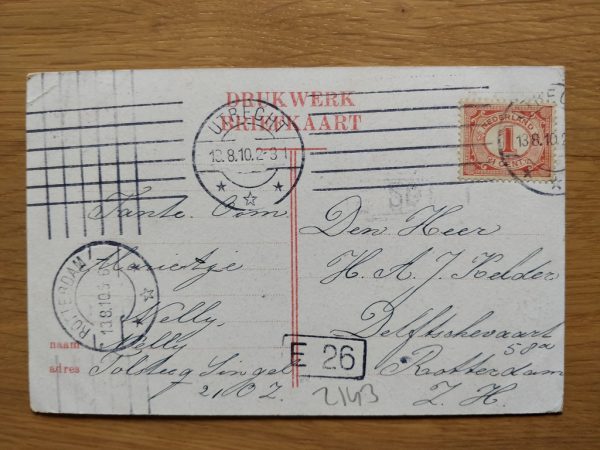 DRUKWERK
BRIEFKAART
UTRECHT
13.8.10.2-3
NEDERLAND
1
CENT
13.8.10.2
Tante. Oom
Marietje
Nelly,
Tolsteeg Singel
naam
adres
ROTTERDAM
13.8.10.
E 26
2143
Den Heer
H. A. J. Kelder
Delftschevaart
58
Rotterdam
Z. H.